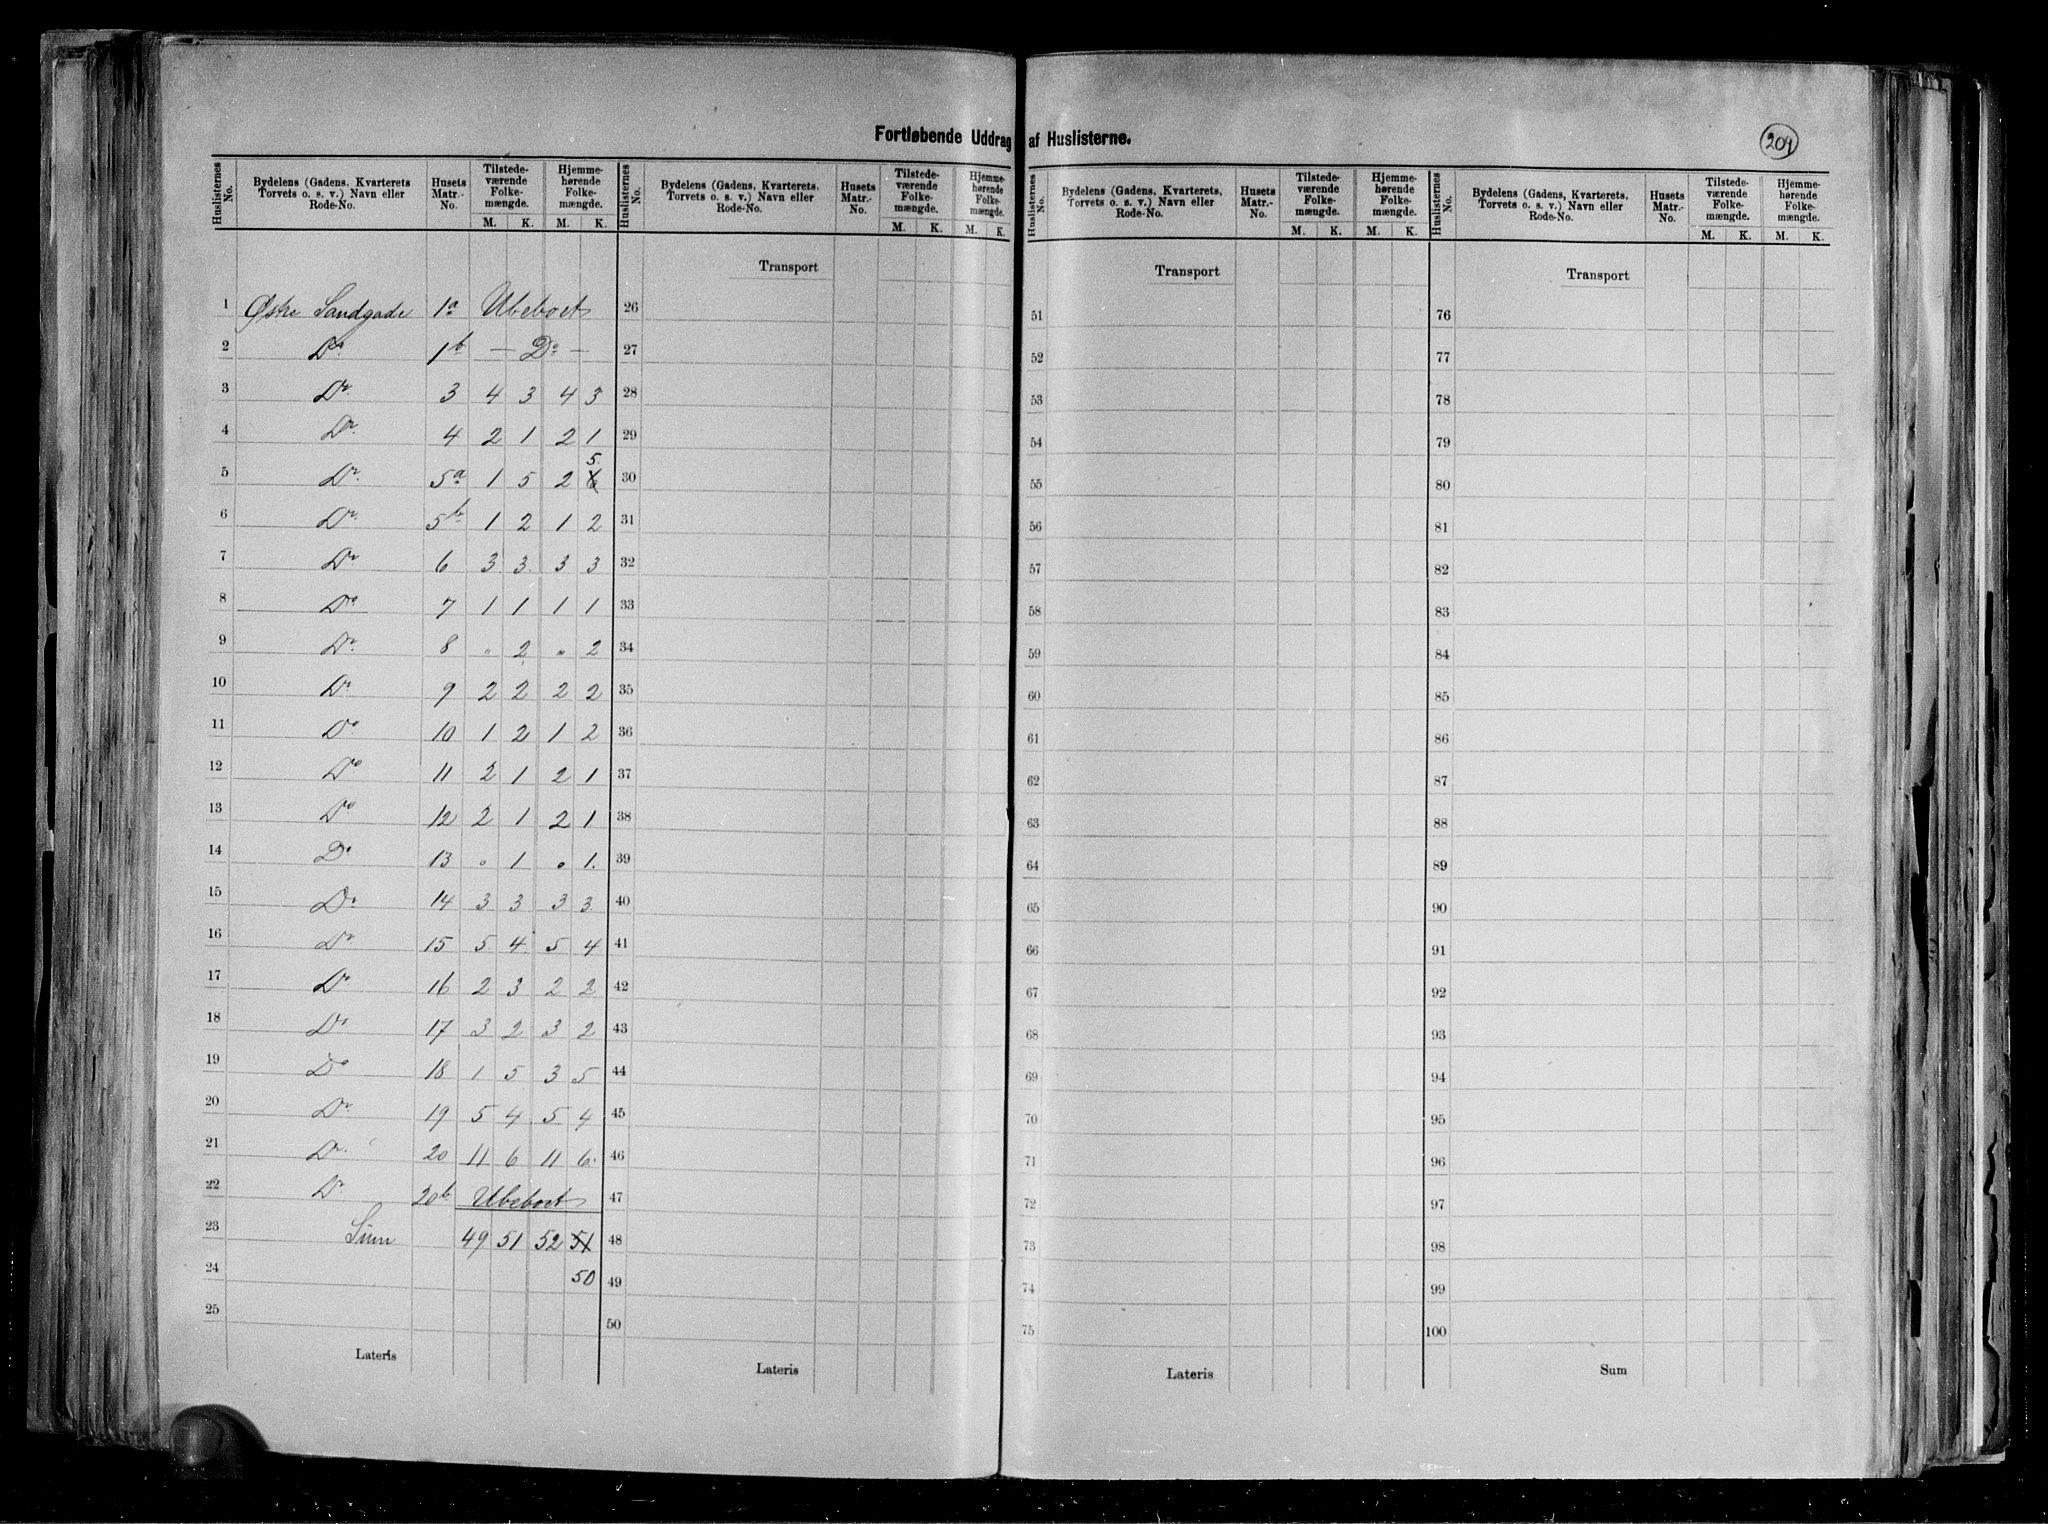 Fortløbende Uddrag af Huslisterne.
209
Huslisternes No. | Bydelens (Gadens, Kvarterets Torvets o. s. v.) Navn eller Rode-No. | Husets Matr.-No. | Tilstedeværende Folkemængde. M. K. | Hjemmehørende Folkemængde. M. K.
1 Østre Sandgade 1a Ubeboet
2 Do 1b — Do —
3 Do 3 4 3 4 3
4 Do 4 2 1 2 1
5 Do 5a 1 5 2 6 5.
6 Do 5b 1 2 1 2
7 Do 6 3 3 3 3
8 Do 7 1 1 1 1
9 Do 8 " 2 " 2
10 Do 9 2 2 2 2
11 Do 10 1 2 1 2
12 Do 11 2 1 2 1
13 Do 12 2 1 2 1
14 Do 13 " 1 " 1.
15 Do 14 3 3 3 3
16 Do 15 5 4 5 4
17 Do 16 2 3 2 2
18 Do 17 3 2 3 2
19 Do 18 1 5 3 5
20 Do 19 5 4 5 4
21 Do 20 11 6 11 6.
22 Do 20b Ubeboet
23 Sum 49 51 52 51
24 50
25
Lateris
Huslisternes No. | Bydelens (Gadens, Kvarterets, Torvets o. s. v.) Navn eller Rode-No. | Husets Matr.-No. | Tilstedeværende Folkemængde. M. K. | Hjemmehørende Folkemængde. M. K.
Transport
26
27
28
29
30
31
32
33
34
35
36
37
38
39
40
41
42
43
44
45
46
47
48
49
50
Lateris
Huslisternes No. | Bydelens (Gadens, Kvarterets, Torvets o. s. v.) Navn eller Rode-No. | Husets Matr.-No. | Tilstedeværende Folkemængde. M. K. | Hjemmehørende Folkemængde. M. K.
Transport
51
52
53
54
55
56
57
58
59
60
61
62
63
64
65
66
67
68
69
70
71
72
73
74
75
Lateris
Huslisternes No. | Bydelens (Gadens, Kvarterets, Torvets o. s. v.) Navn eller Rode-No. | Husets Matr.-No. | Tilstedeværende Folkemængde. M. K. | Hjemmehørende Folkemængde. M. K.
Transport
76
77
78
79
80
81
82
83
84
85
86
87
88
89
90
91
92
93
94
95
96
97
98
99
100
Sum